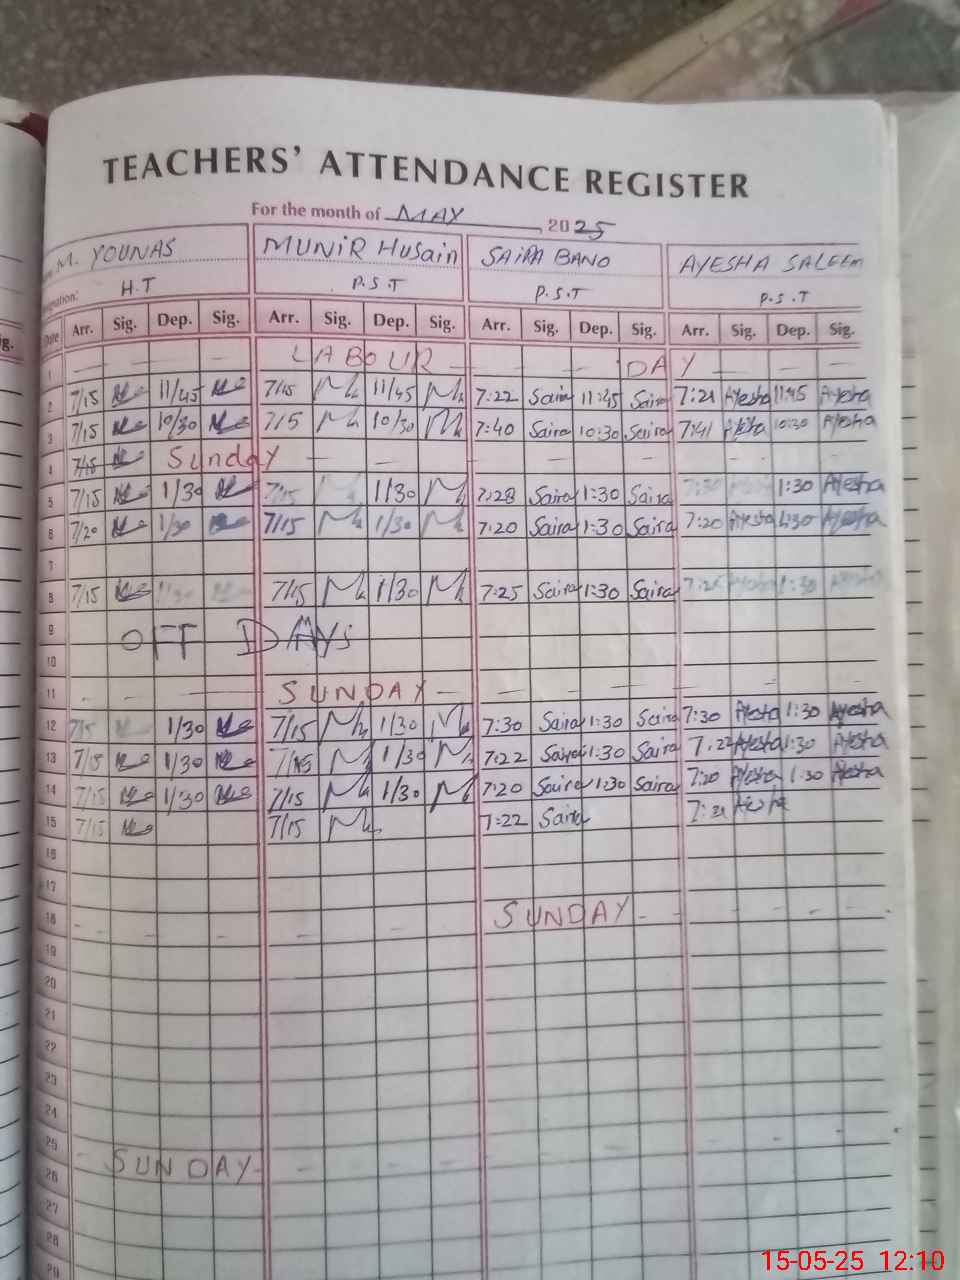 TEACHERS' ATTENDANCE REGISTER
For the month of MAY, 2025
M. YOUNAS MUNIR HUSain SAIRA BANO AYESHA SALEEM
H.T P.S.T P.S.T P.S.T
Date Arr. Sig. Dep. Sig. Arr. Sig. Dep. Sig. Arr. Sig. Dep. Sig. Arr. Sig. Dep. Sig.
1 LABOUR DAY
2 7/15 11/45 7/15 11/45 7:22 Saira 11:45 Saira 7:21 Ayesha 11:45 Ayesha
3 7/15 10/30 7/5 10/30 7:40 Saira 10:30 Saira 7:41 Ayesha 10:30 Ayesha
4 7/15 Sunday
5 7/15 1/30 7/15 1/30 7:28 Saira 1:30 Saira 7:30 1:30 Ayesha
6 7/20 1/30 7/15 1/30 7:20 Saira 1:30 Saira 7:20 Ayesha 1:30 Ayesha
7
8 7/15 1/30 7/15 1/30 7:25 Saira 1:30 Saira 1:30 Ayesha
9 OFF DAYS
10
11 SUNDAY
12 7/15 1/30 7/15 1/30 7:30 Saira 1:30 Saira 7:30 Ayesha 1:30 Ayesha
13 7/15 1/30 7/15 1/30 7:22 Saira 1:30 Saira 7:22 Ayesha 1:30 Ayesha
14 7/15 1/30 7/15 1/30 7:20 Saira 1:30 Saira 7:20 Ayesha 1:30 Ayesha
15 7/15 7/15 7:22 Saira 7:21 Ayesha
16
17
18 SUNDAY
19
20
21
22
23
24
25 SUNDAY
26
27
28
29
15-05-25 12:10